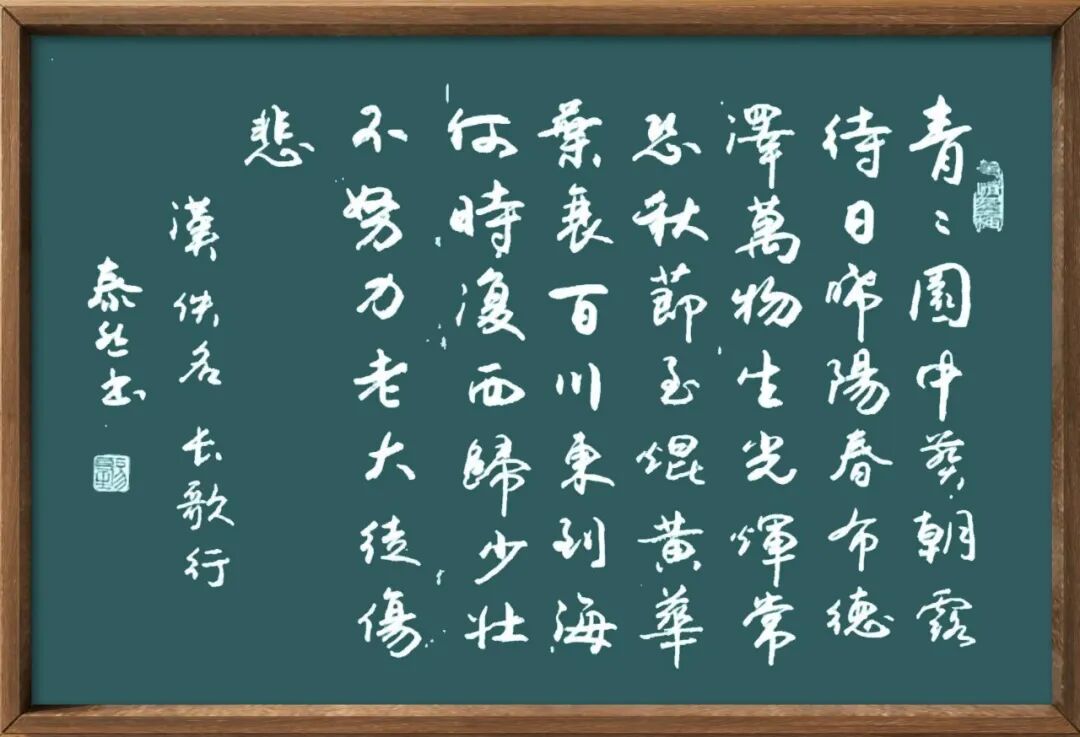 青〻園中葵朝露
待日晞陽春布德
澤萬物生光煇常
恐秋節至焜黃華
葉衰百川東到海
何時復西歸少壯
不努力老大徒傷
悲
漢佚名 長歌行
泰然书